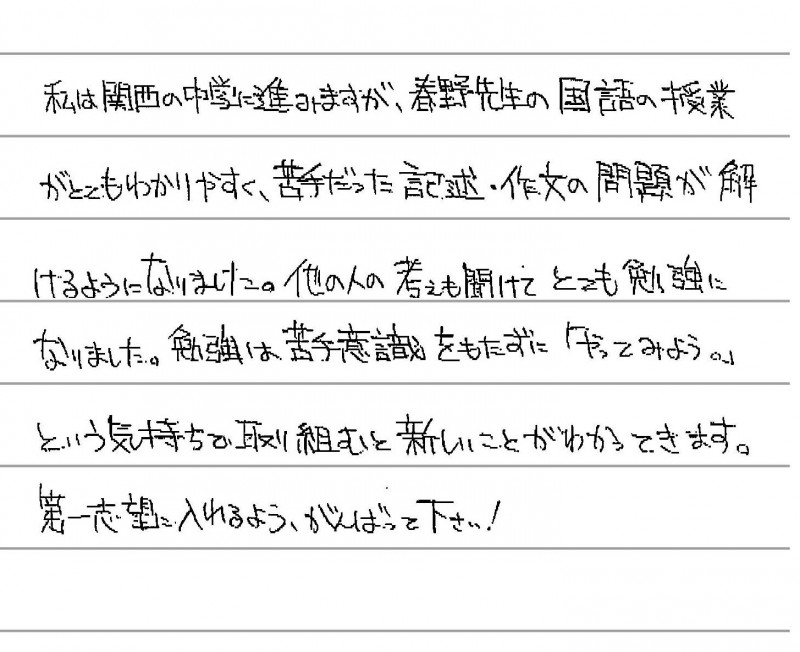 私は関西の中学に進みますが、春野先生の国語の授業
がとてもわかりやすく、苦手だった記述・作文の問題が解
けるようになりました。他の人の考えも聞けてとても勉強に
なりました。勉強は苦手意識をもたずに「やってみよう。」
という気持ちで取り組むと新しいことがわかってきます。
第一志望に入れるよう、がんばって下さい！